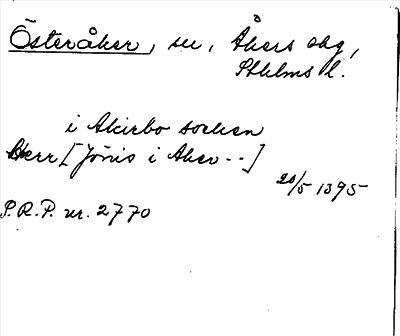 Österåker, sn, Åkers skg,
Sthlms l.
i Akirbo socken
Herr [Jönis i Aker --]
20/5 1395
S.R.P. nr. 2770